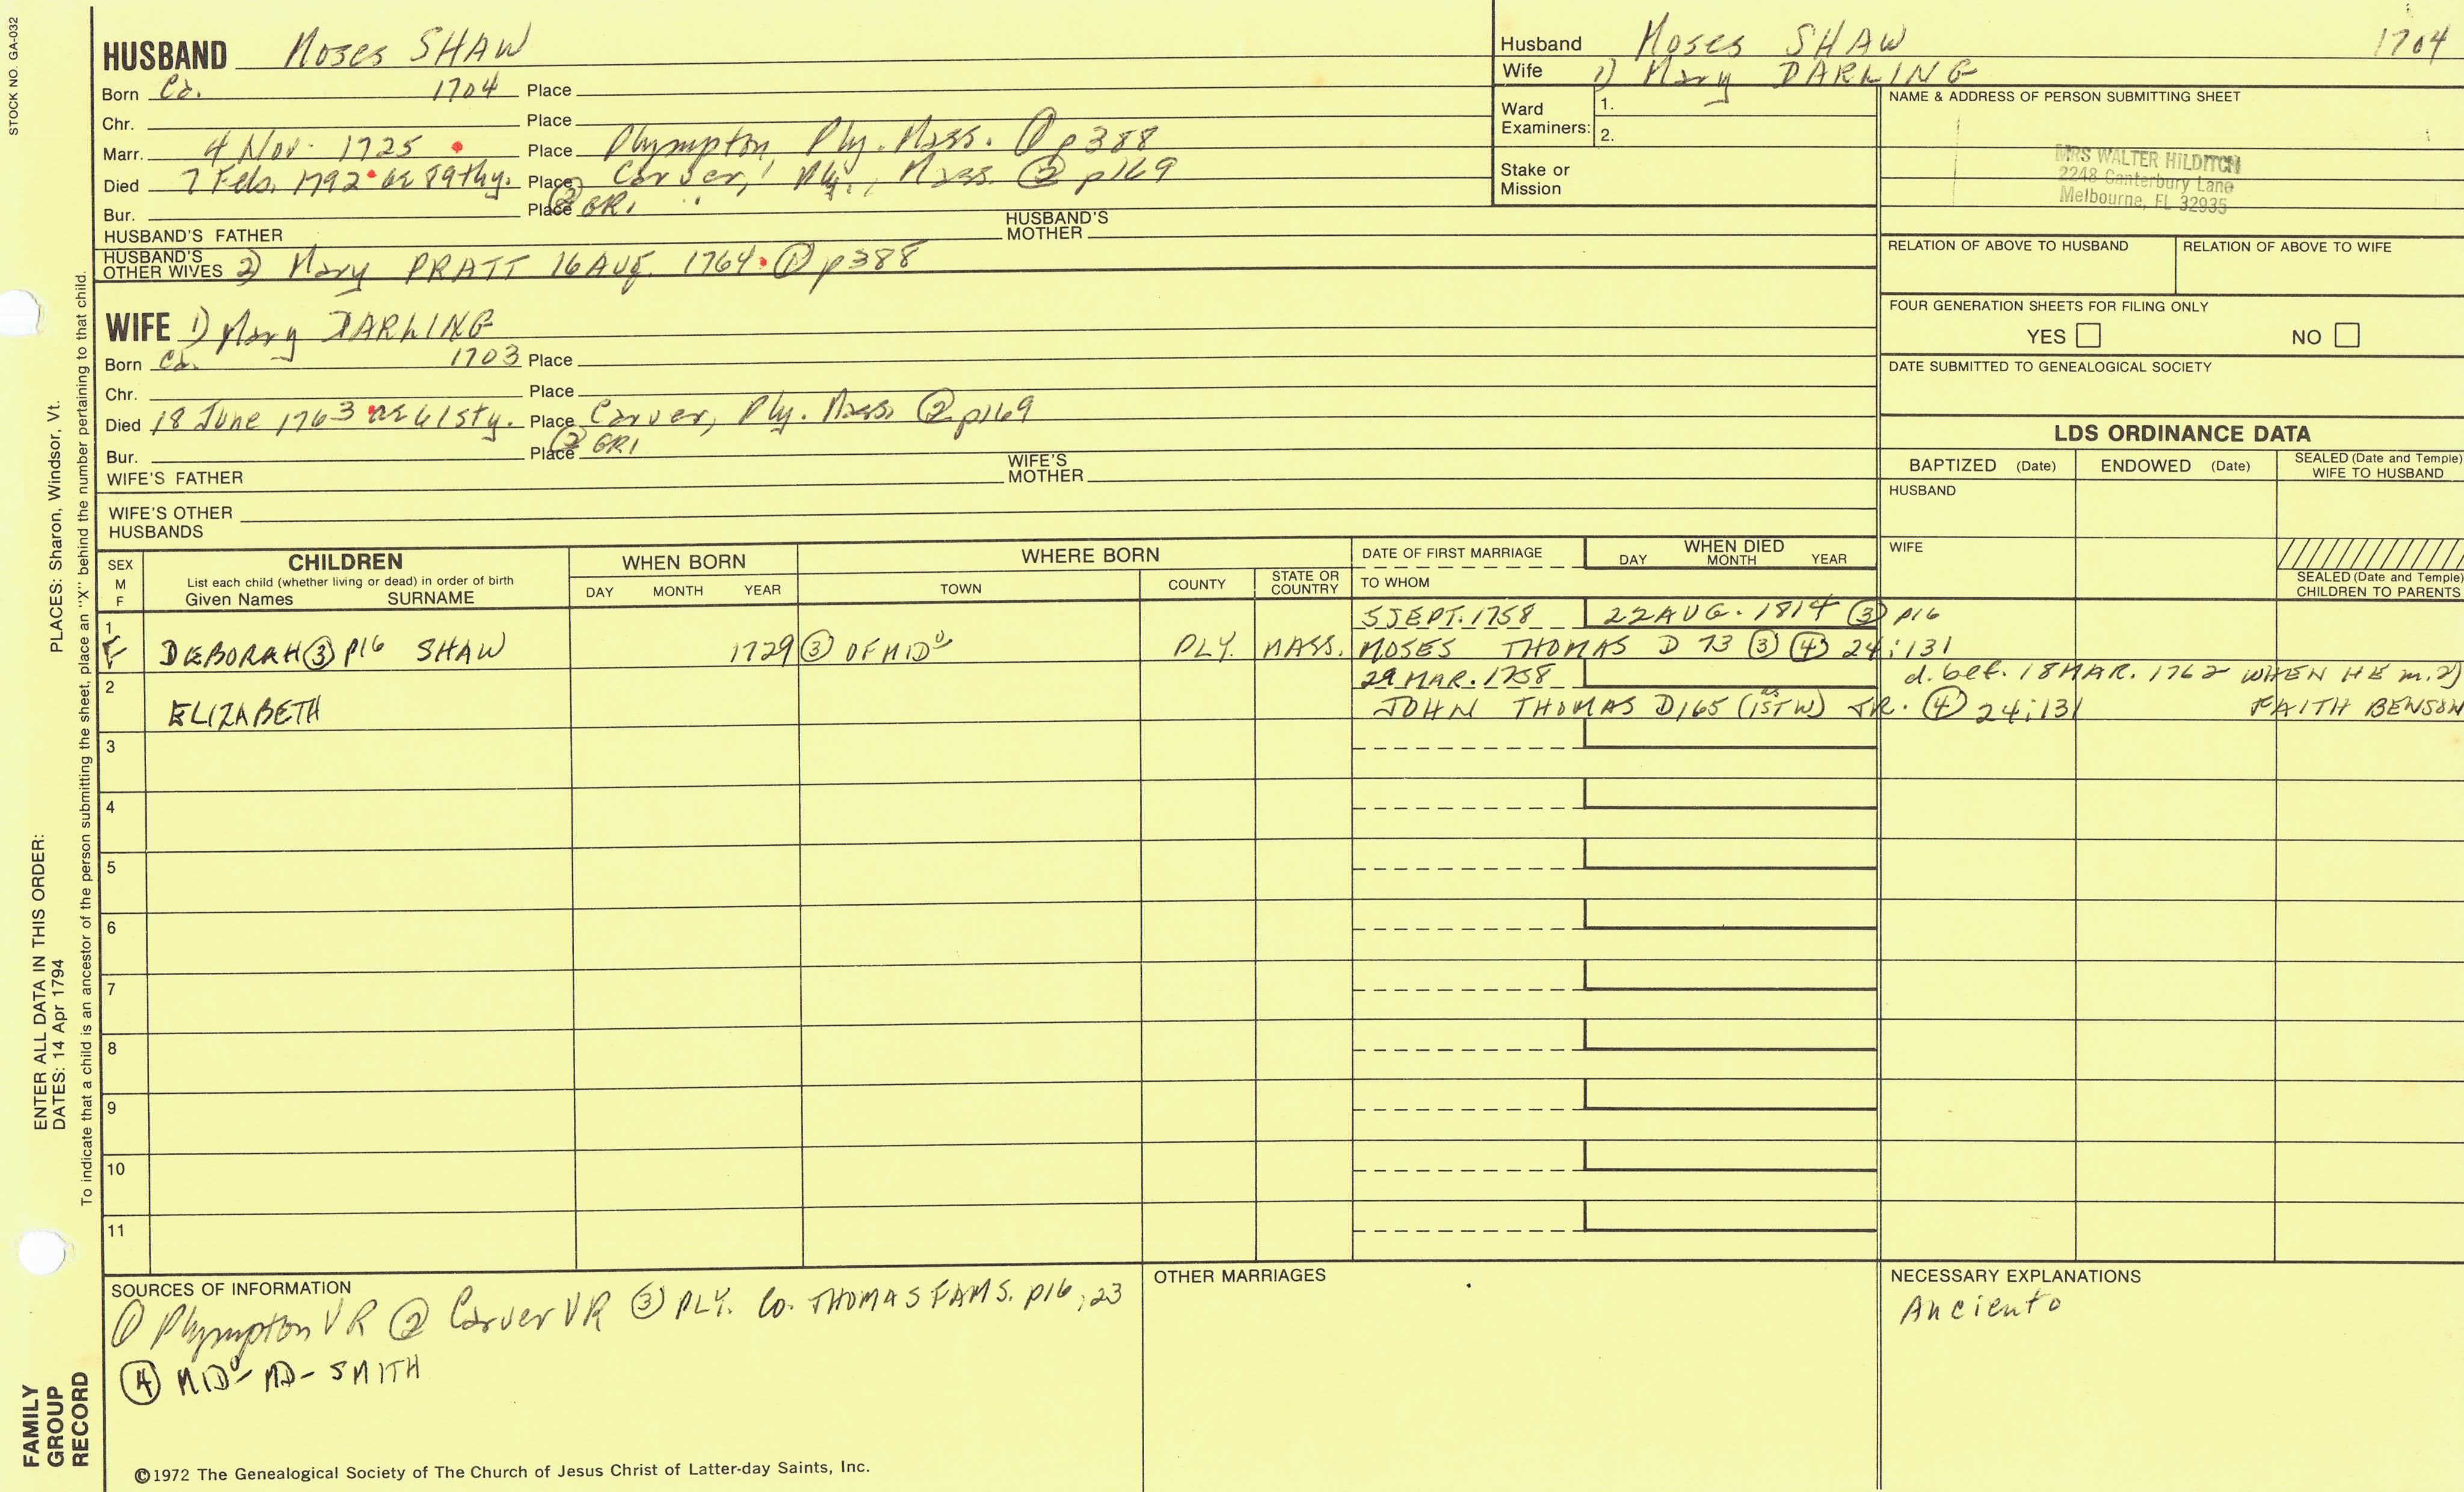 STOCK NO. GA-032
HUSBAND Moses SHAW
Born Ca. 1704 Place
Chr. Place
Marr. 4 Nov. 1725 Place Plympton, Ply. Mass. ① p388
Died 7 Feb. 1792 ae 89thy. Place Carver, Ply., Mass. ② p169
Bur. Place ② GR1
HUSBAND'S FATHER HUSBAND'S MOTHER
HUSBAND'S OTHER WIVES 2) Mary PRATT 16 AUG. 1764 ① p388
Husband Moses SHAW 1704
Wife 1) Mary DARLING
Ward Examiners: 1.
2.
Stake or Mission
NAME & ADDRESS OF PERSON SUBMITTING SHEET
MRS WALTER HILDITCH
2248 Canterbury Lane
Melbourne, FL 32935
RELATION OF ABOVE TO HUSBAND RELATION OF ABOVE TO WIFE
FOUR GENERATION SHEETS FOR FILING ONLY
YES NO
DATE SUBMITTED TO GENEALOGICAL SOCIETY
WIFE 1) Mary DARLING
Born Ca. 1703 Place
Chr. Place
Died 18 June 1763 ae 61sty. Place Carver, Ply. Mass. ② p169
Bur. Place ② GR1
WIFE'S FATHER WIFE'S MOTHER
WIFE'S OTHER HUSBANDS
LDS ORDINANCE DATA
BAPTIZED (Date) ENDOWED (Date) SEALED (Date and Temple) WIFE TO HUSBAND
HUSBAND
WIFE
SEALED (Date and Temple) CHILDREN TO PARENTS
SEX M F CHILDREN WHEN BORN WHERE BORN DATE OF FIRST MARRIAGE WHEN DIED
List each child (whether living or dead) in order of birth
Given Names SURNAME DAY MONTH YEAR TOWN COUNTY STATE OR COUNTRY TO WHOM DAY MONTH YEAR
5 SEPT. 1758 22 AUG. 1814 ③ p16
1 F DEBORAH ③ P16 SHAW 1729 ③ OF MIDº PLY. MASS. MOSES THOMAS D 73 ③ ④ 24:131
29 MAR. 1758 d. bef. 18 MAR. 1762 WHEN HE m. 2)
2 ELIZABETH JOHN THOMAS D165 (as 1ST W) JR. ④ 24:131 FAITH BENSON
3
4
5
6
7
8
9
10
11
SOURCES OF INFORMATION
① Plympton VR ② Carver VR ③ PLY. Co. THOMAS FAMS. p16,23
④ MIDº- MD- SMITH
OTHER MARRIAGES
NECESSARY EXPLANATIONS
Anciento
©1972 The Genealogical Society of The Church of Jesus Christ of Latter-day Saints, Inc.
ENTER ALL DATA IN THIS ORDER:
DATES: 14 Apr 1794 PLACES: Sharon, Windsor, Vt.
To indicate that a child is an ancestor of the person submitting the sheet, place an "X" behind the number pertaining to that child.
FAMILY
GROUP
RECORD